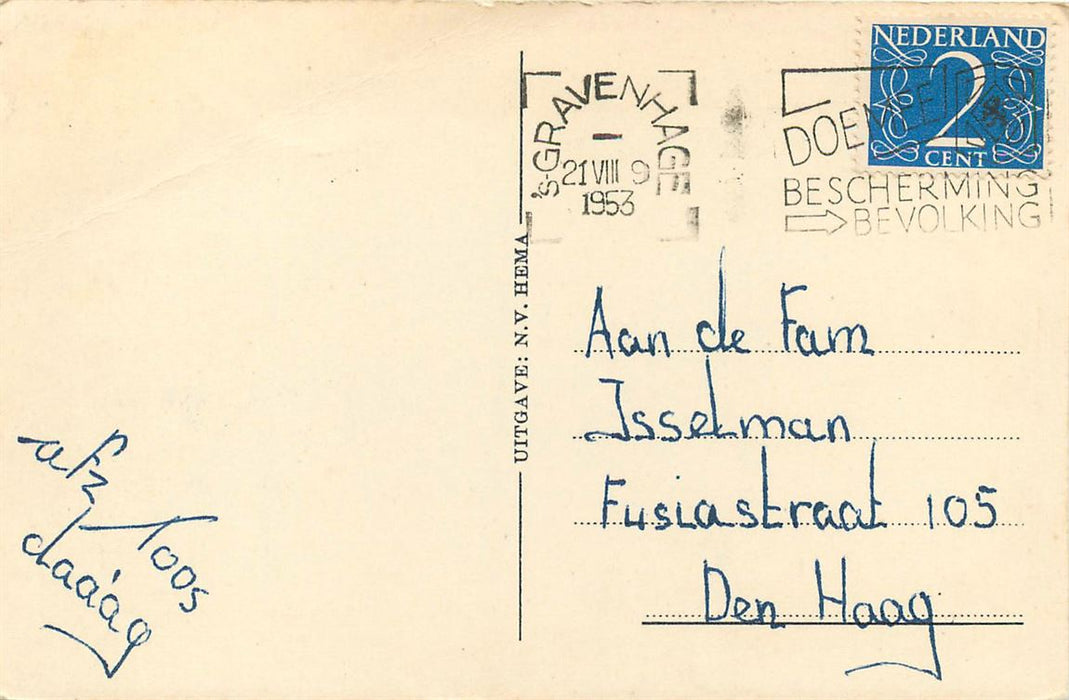 NEDERLAND
2
CENT
's-GRAVENHAGE
21 VIII 9
1953
DOE MEE
BESCHERMING
BEVOLKING
UITGAVE: N.V. HEMA
Aan de Fam
Isselman
Fusiastraat 105
Den Haag
afz Toos
daáàg